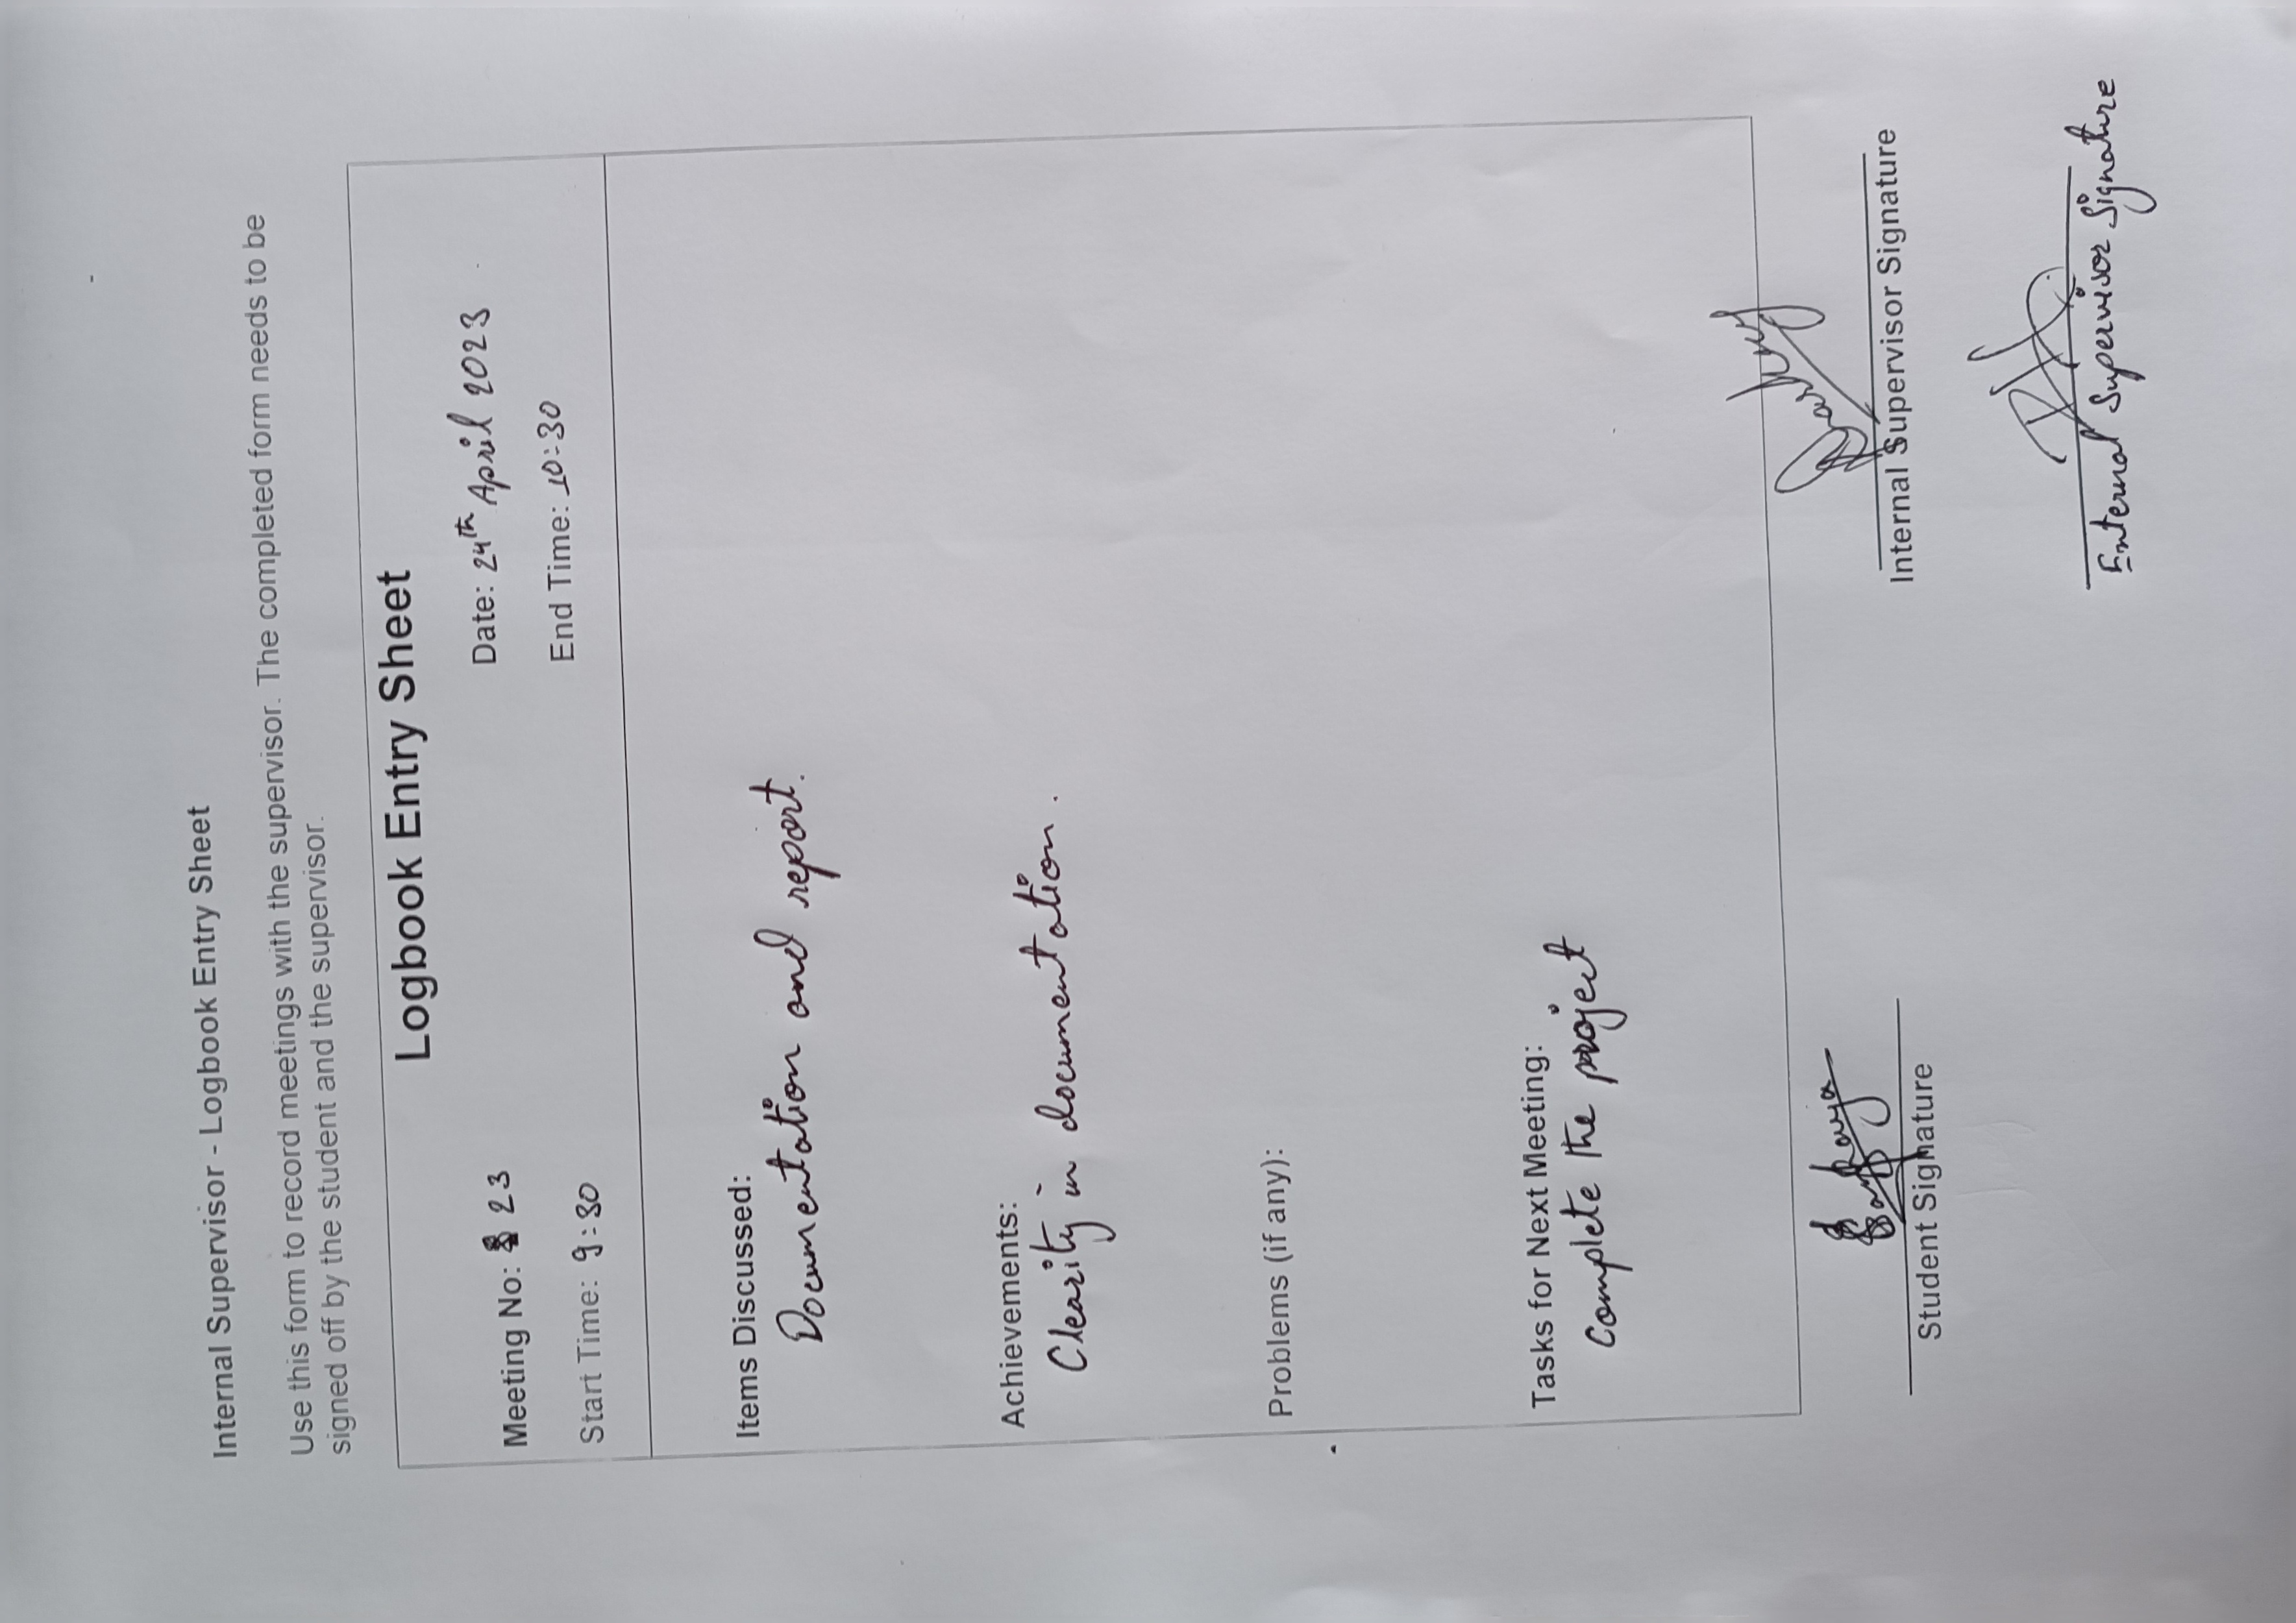 Internal Supervisor - Logbook Entry Sheet
Use this form to record meetings with the supervisor. The completed form needs to be
signed off by the student and the supervisor.
Logbook Entry Sheet
Meeting No: 23 Date: 24th April 2023
Start Time: 9:30 End Time: 10:30
Items Discussed:
Documentation and report.
Achievements:
Clearity in documentation.
Problems (if any):
Tasks for Next Meeting:
Complete the project
Student Signature Internal Supervisor Signature
External Supervisor Signature